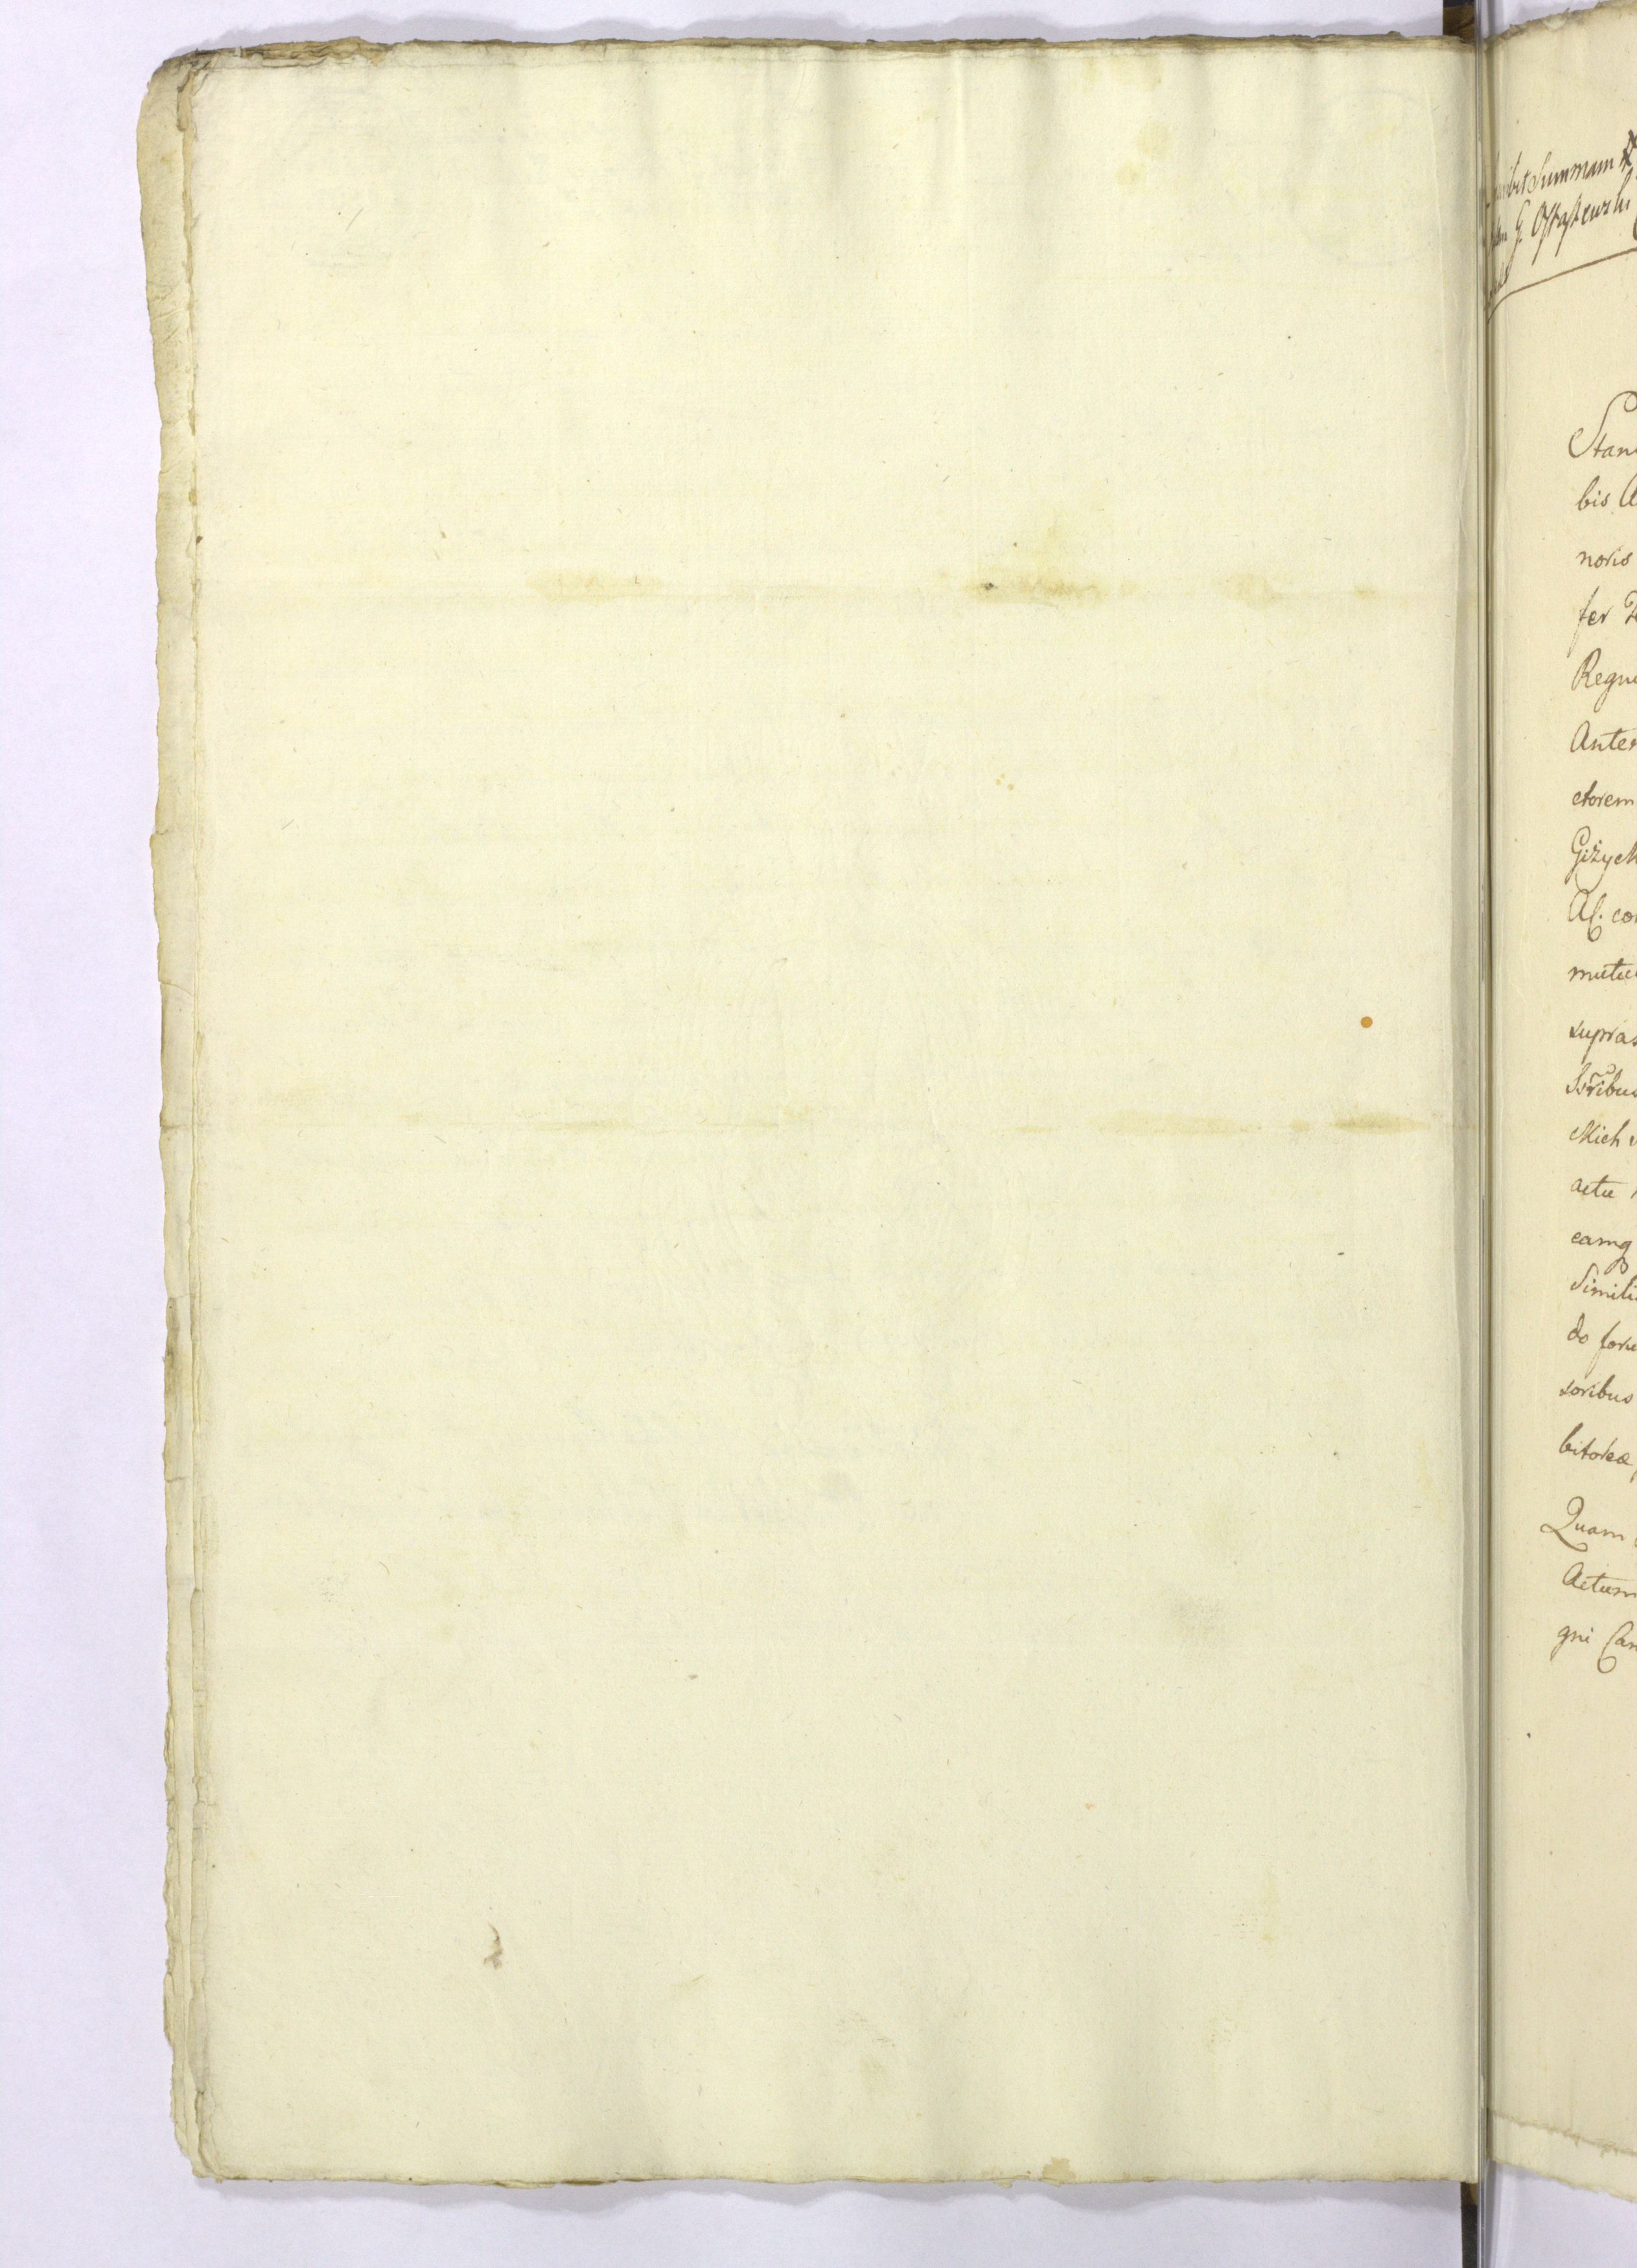 Summam
G. Ostaszewski
Stan
bis A
noris
fer
Regni
Anter
ctorem
Giżyck
Al. co
mutu
supras
bribus
Mich
actu
eamq
Simili
do foru
soribus
bitorea
Quam
Actum
gni Can